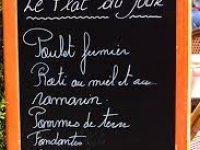 Le Plat du jour
Poulet fermier
Roti au miel et au
romarin
Pommes de terre
Fondantes